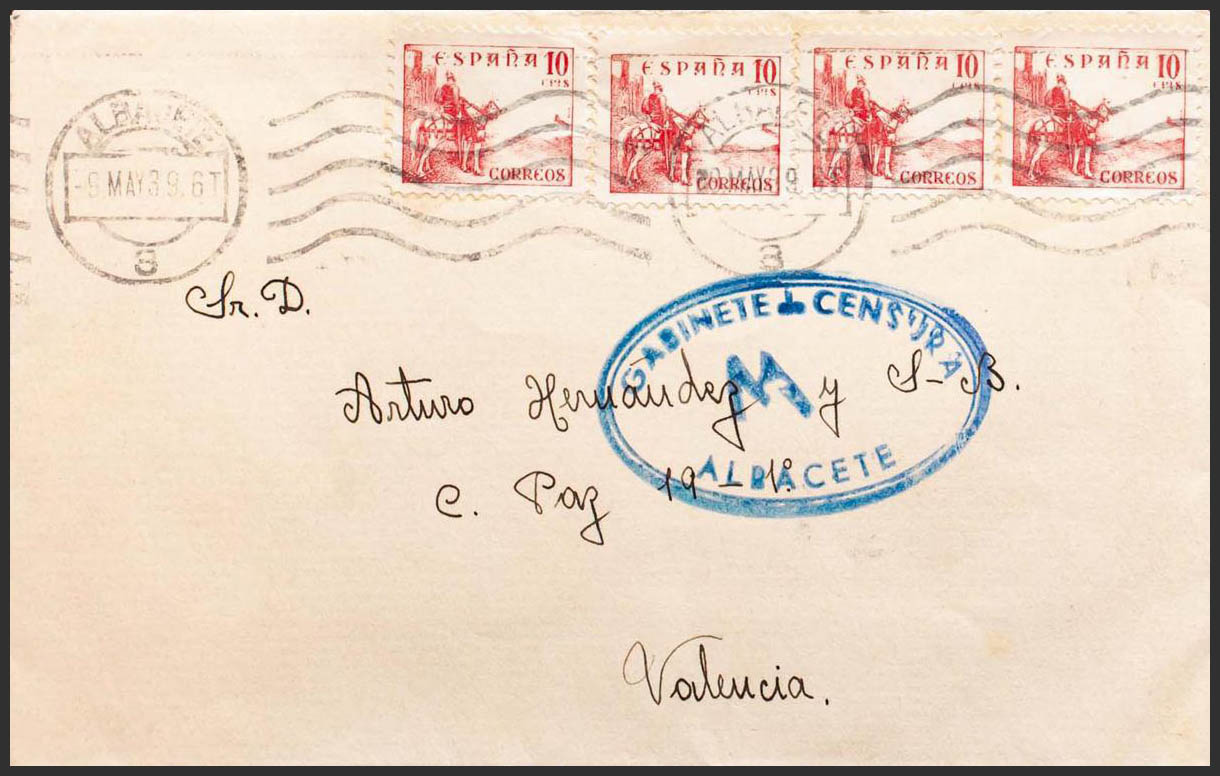 ESPAÑA 10
CTS
CORREOS
ESPAÑA 10
CTS
CORREOS
ESPAÑA 10
CTS
CORREOS
ESPAÑA 10
CTS
CORREOS
-9 MAY 39. 6T
8
MAY 39
8
Sr. D.
GABINETE CENSURA
Arturo Hernández y S-B.
ALBACETE
C. Paz 19-1º.
Valencia.